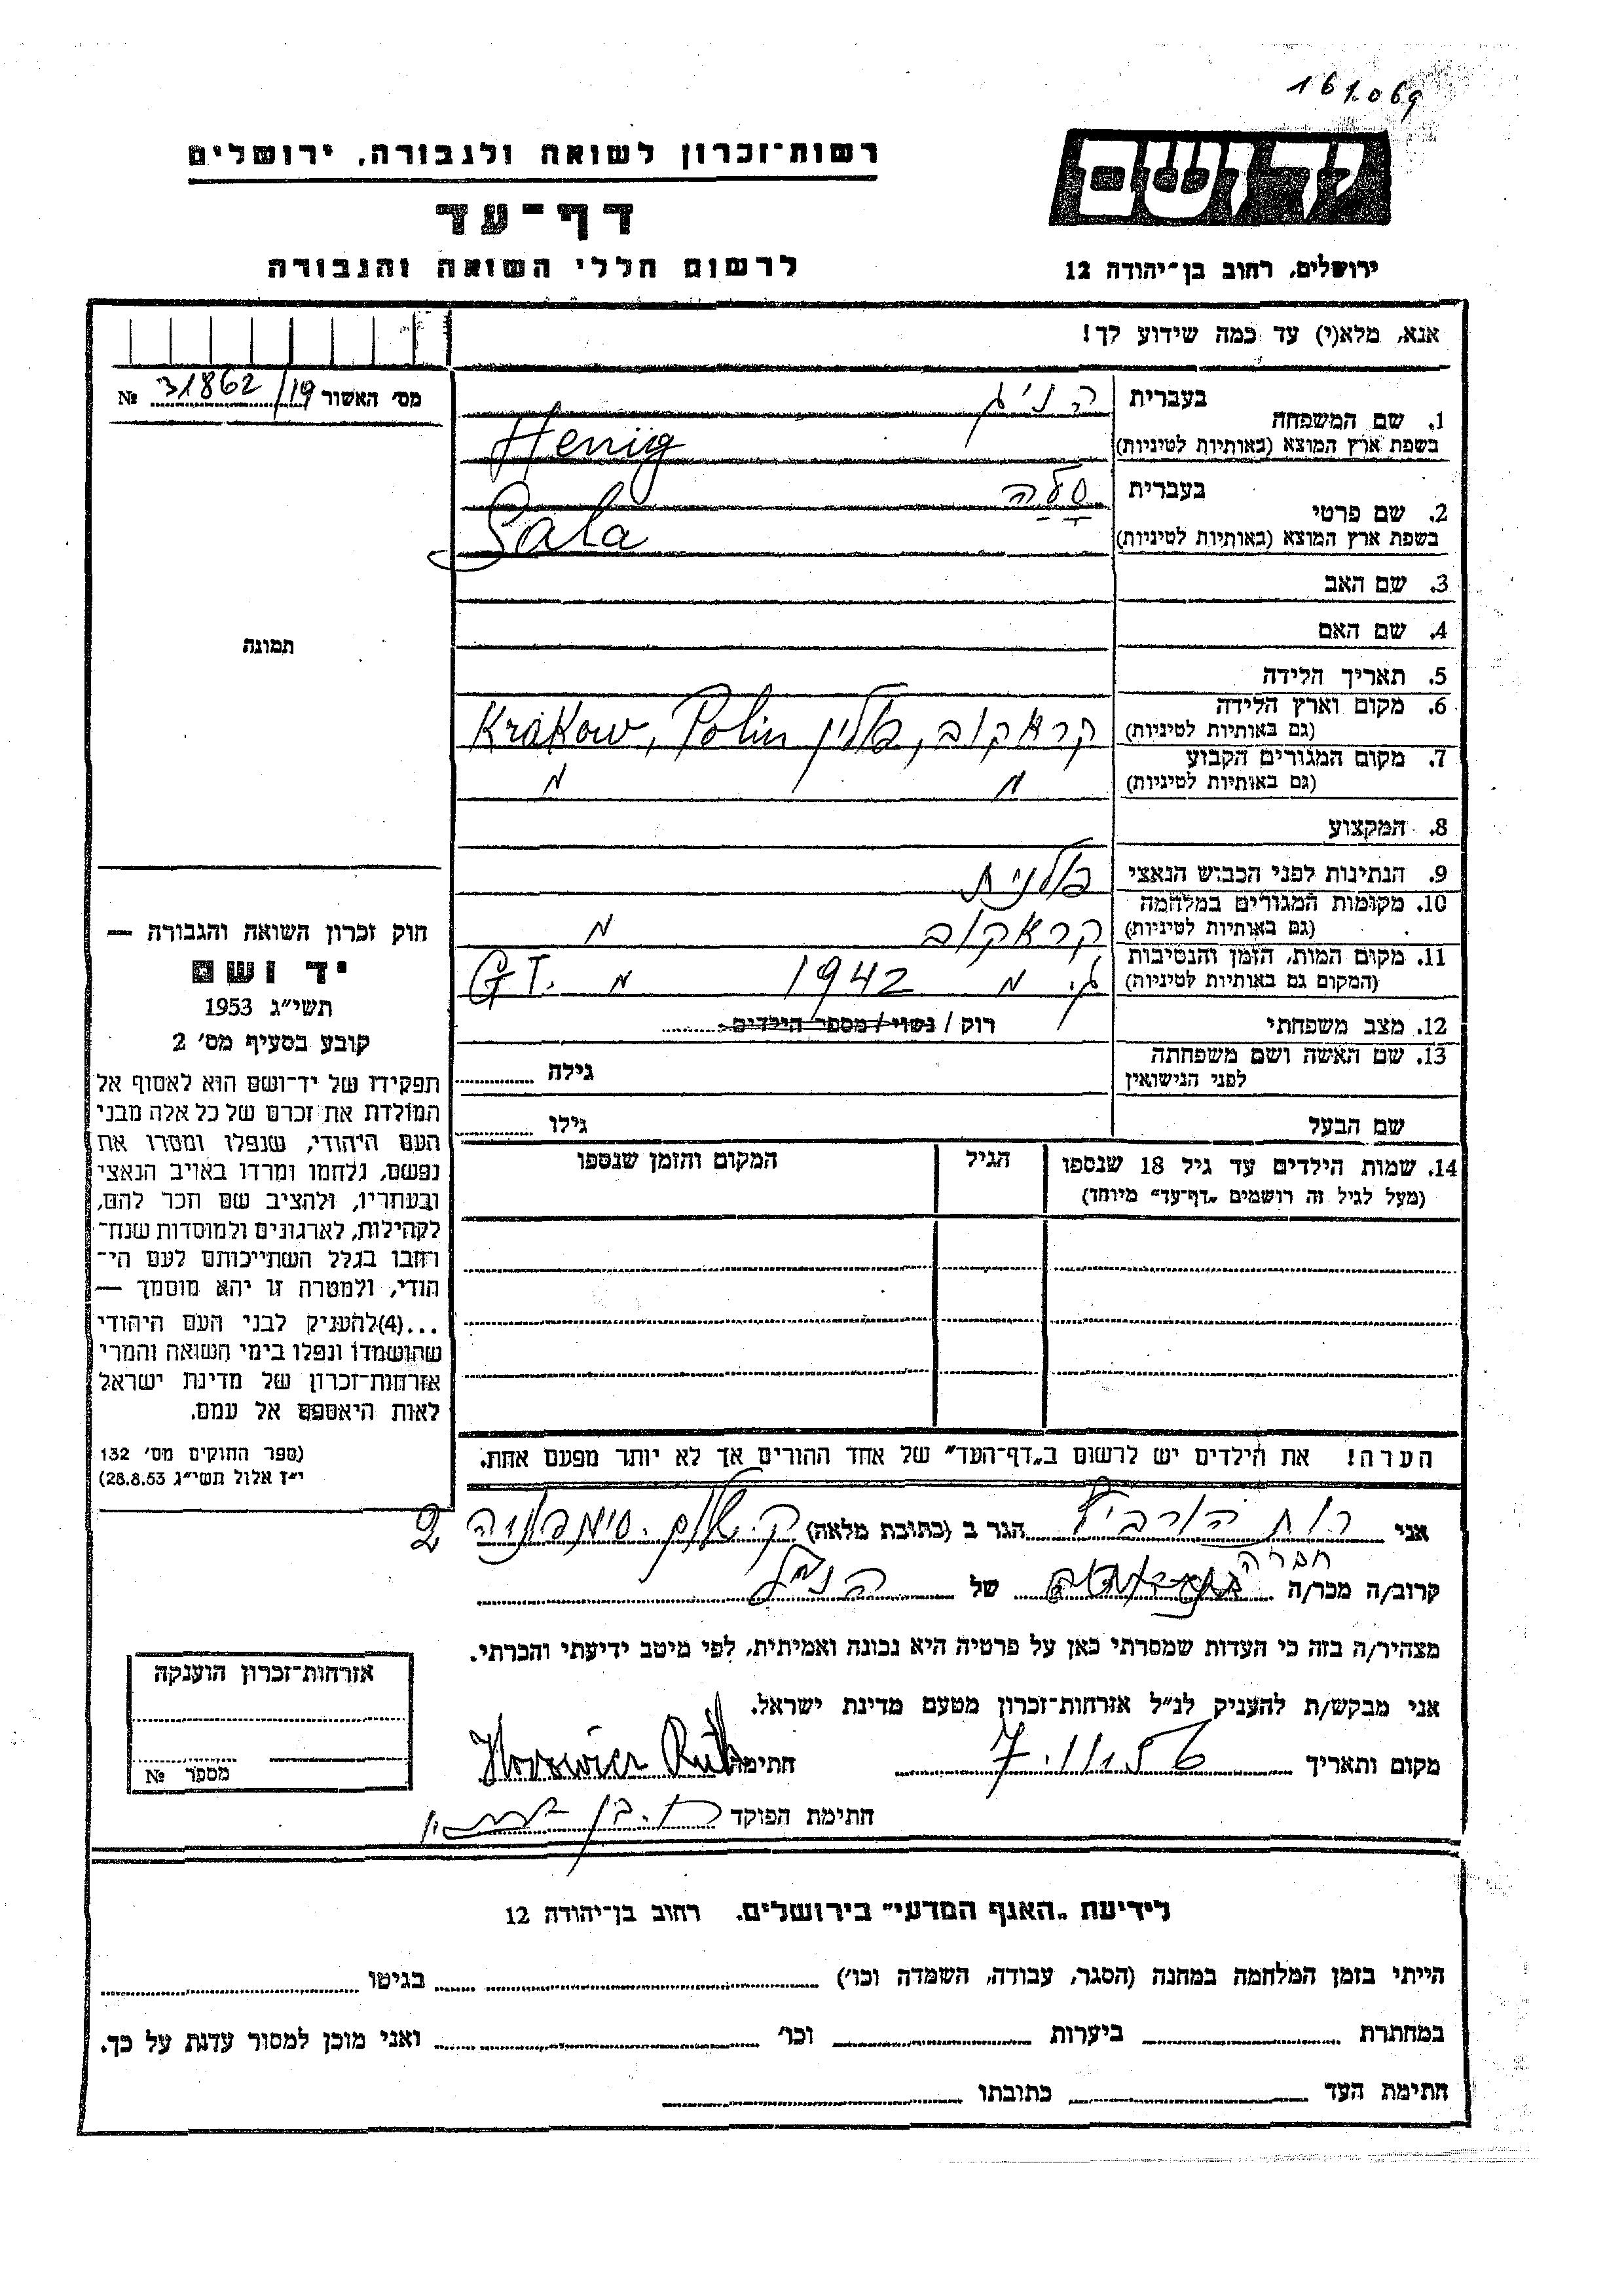 161069
יד ושם
רשות-זכרון לשואה ולגבורה, ירושלים
דף-עד
ירושלים, רחוב בן-יהודה 12
לרשום חללי השואה והגבורה
אנא, מלא(י) עד כמה שידוע לך!
מס' האשור 31862/19 №
1. שם המשפחה
בעברית הניג
בשפת ארץ המוצא (באותיות לטיניות) Henig
2. שם פרטי
בעברית סלה
בשפת ארץ המוצא (באותיות לטיניות) Sala
3. שם האב
4. שם האם
תמונה
5. תאריך הלידה
6. מקום וארץ הלידה
(גם באותיות לטיניות) קראקוב, פולין Kraków, Polin
7. מקום המגורים הקבוע
(גם באותיות לטיניות) " "
8. המקצוע
9. הנתינות לפני הכבוש הנאצי פולנית
10. מקומות המגורים במלחמה
(גם באותיות לטיניות) קראקוב "
11. מקום המות, הזמן והנסיבות
(המקום גם באותיות לטיניות) ג. " 1942 " GT.
12. מצב משפחתי רוק / נשוי / מספר הילדים
13. שם האשה ושם משפחתה
לפני הנישואין גילה
שם הבעל גילו
14. שמות הילדים עד גיל 18 שנספו הגיל המקום והזמן שנספו
(מעל לגיל זה רושמים "דף-עד" מיוחד)
חוק זכרון השואה והגבורה —
יד ושם
תשי"ג 1953
קובע בסעיף מס' 2
תפקידו של יד-ושם הוא לאסוף אל
המולדת את זכרם של כל אלה מבני
העם היהודי, שנפלו ומסרו את
נפשם, נלחמו ומרדו באויב הנאצי
ובעוזריו, ולהציב שם וזכר להם,
לקהילות, לארגונים ולמוסדות שנח-
רובו בגלל השתייכותם לעם הי-
הודי, ולמטרה זו יהא מוסמך —
...(4)להעניק לבני העם היהודי
שהושמדו ונפלו בימי השואה והמרי
אזרחות-זכרון של מדינת ישראל
לאות היאספם אל עמם.
(ספר החוקים מס' 132
י"ז אלול תשי"ג 28.8.53)
הערה! את הילדים יש לרשום ב"דף-העד" של אחד ההורים אך לא יותר מפעם אחת.
אני רות הורביץ הגר ב (כתובת מלאה) ק. שלום 2
קרוב/ה מכר/ה חברה של הנ"ל
מצהיר/ה בזה כי העדות שמסרתי כאן על פרטיה היא נכונה ואמיתית, לפי מיטב ידיעתי והכרתי.
אני מבקש/ת להעניק לנ"ל אזרחות-זכרון מטעם מדינת ישראל.
מקום ותאריך 7.11.56 חתימה Horowicz Rut
חתימת הפוקד
אזרחות-זכרון הוענקה
מספר №
לידיעת "האגף המדעי" בירושלים. רחוב בן-יהודה 12
הייתי בזמן המלחמה במחנה (הסגר, עבודה, השמדה וכו') בגיטו
במחתרת ביערות וכו' ואני מוכן למסור עדות על כך.
חתימת העד כתובתו